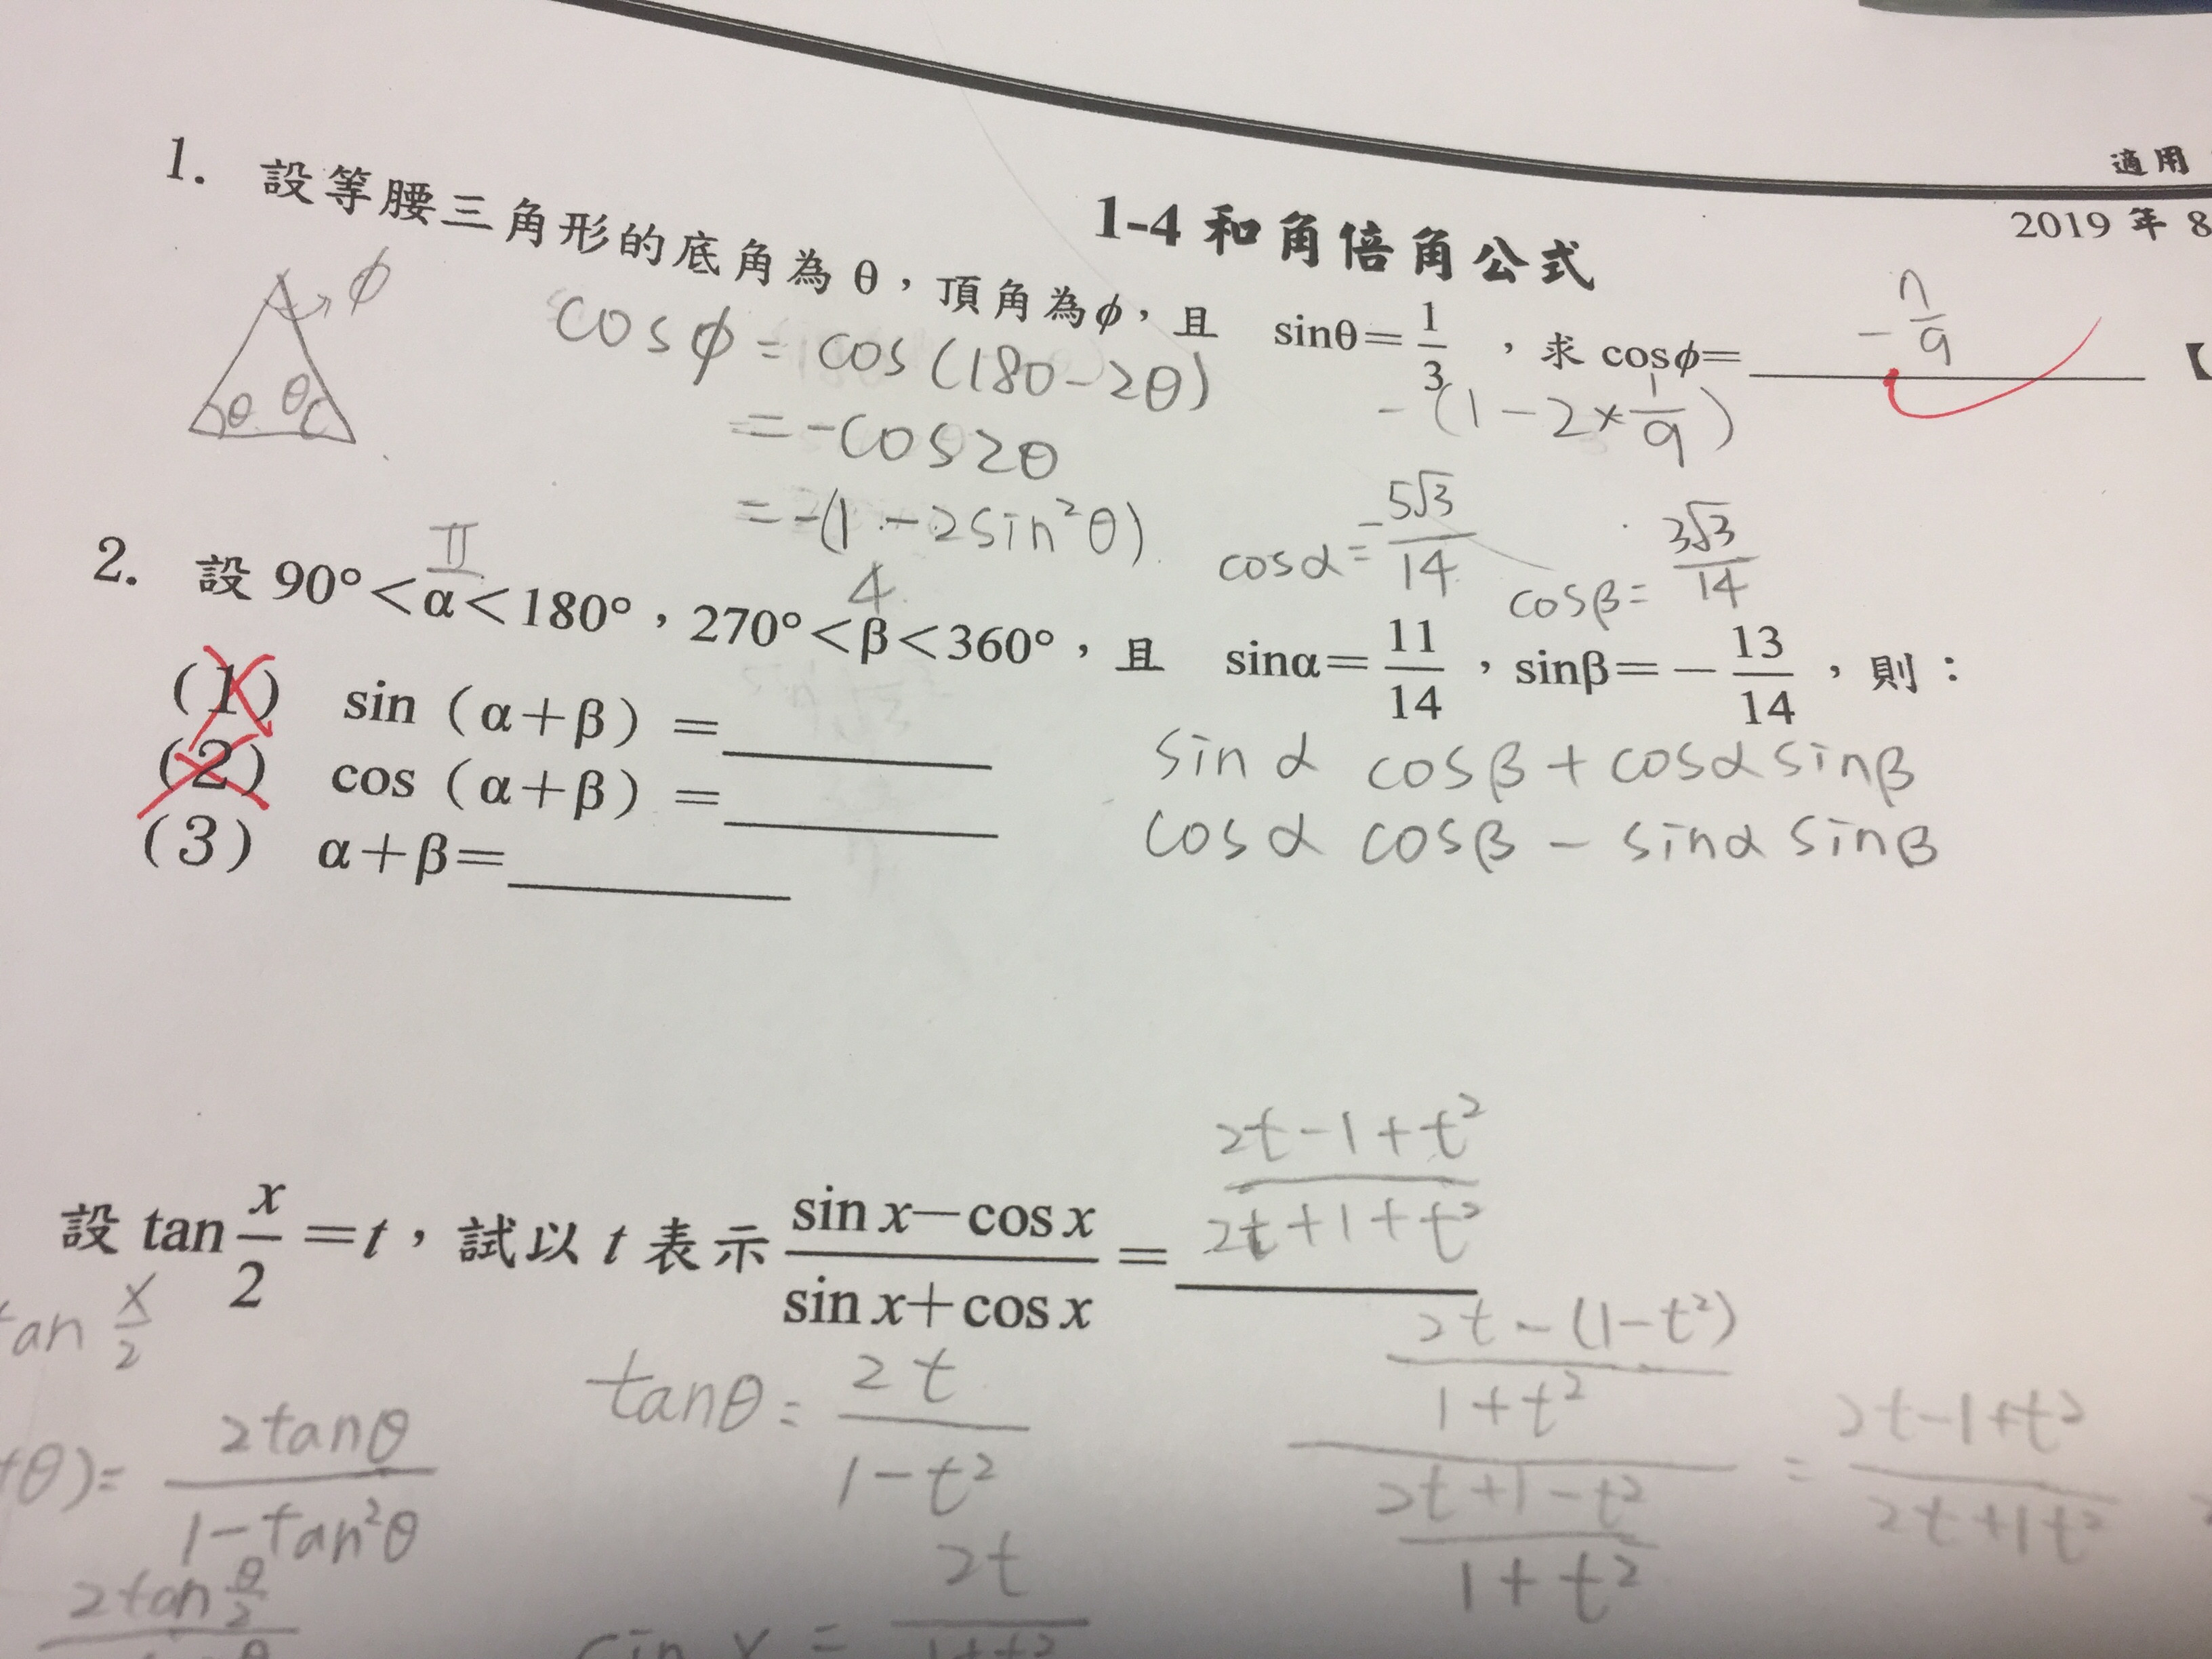 適用
2019 年 8
1-4 和角倍角公式
1. 設等腰三角形的底角為 θ，頂角為ϕ，且 sinθ=1/3，求 cosϕ= -7/9 【
ϕ
θ θ
cosϕ = cos(180-2θ)
= -cos2θ
= -(1-2sin²θ)
-(1-2×1/9)
II
4
cosα = -5√3/14
cosβ = 3√3/14
2. 設 90°<α<180°，270°<β<360°，且 sinα=11/14，sinβ=-13/14，則：
(1) sin（α+β）=
(2) cos（α+β）=
(3) α+β=
sinα cosβ + cosα sinβ
cosα cosβ - sinα sinβ
設 tan x/2 =t，試以 t 表示 (sin x-cos x)/(sin x+cos x) = (2t-1+t²)/(2t+1+t²)
tan x/2
θ)= 2tanθ/(1-tan²θ)
2tan θ/2
tanθ = 2t/(1-t²)
sin x = 2t/(1+t²)
((2t-(1-t²))/(1+t²))/((2t+1-t²)/(1+t²)) = (2t-1+t²)/(2t+1t²)